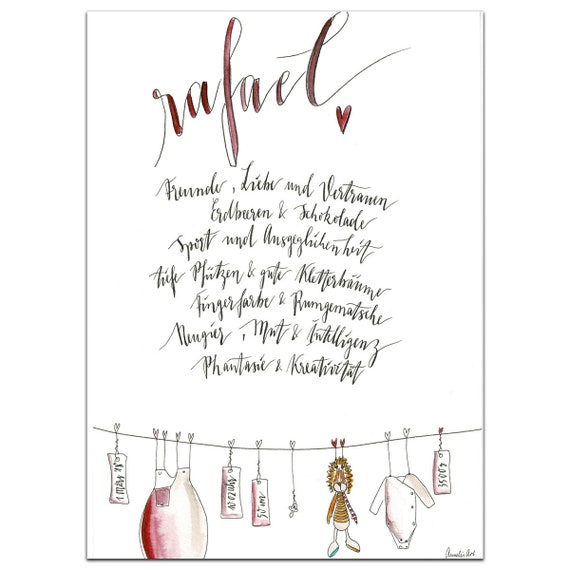 rafael
Freunde, Liebe und Vertrauen
Erdbeeren & Schokolade
Sport und Ausgeglichenheit
tiefe Pfützen & gute Kletterbäume
Fingerfarbe & Rumgematsche
Neugier, Mut & Intelligenz
Phantasie & Kreativität
1 März 18
10:02 Uhr
3500g